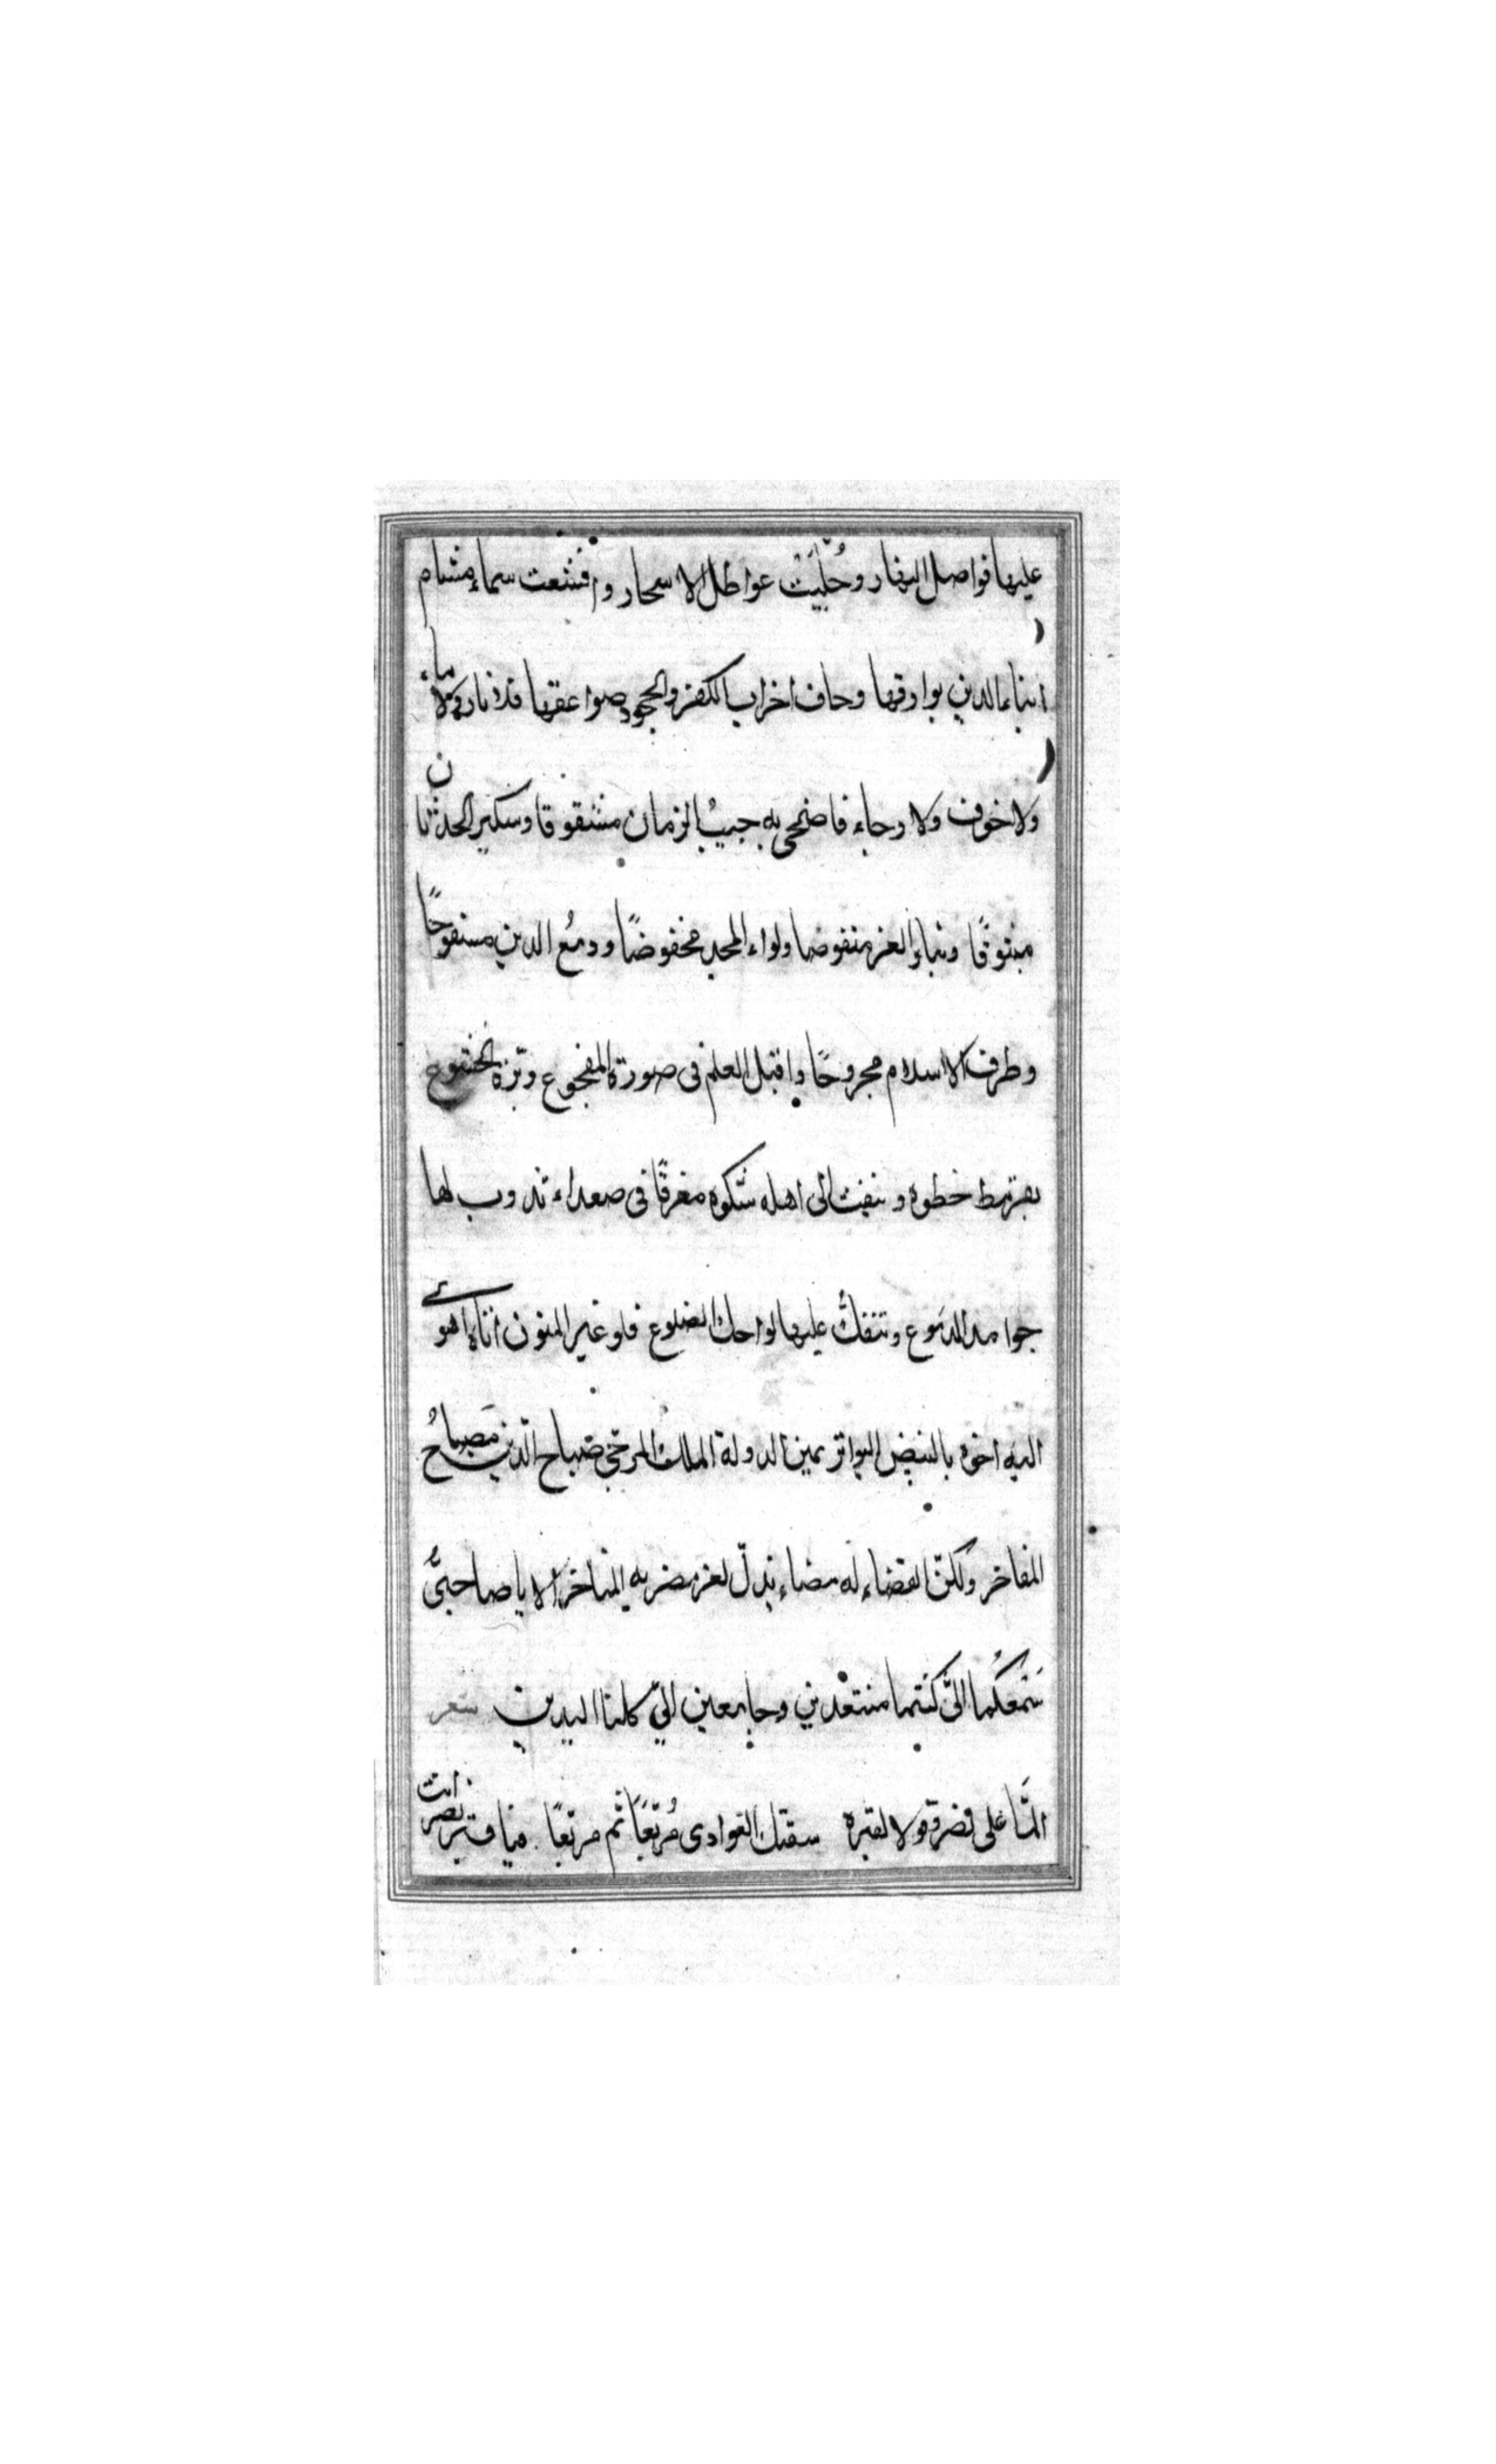 عليها فواصل النهار وحُلّيَتْ عواطل الاسحار واقشعت سماء مشام
ابناء الدين بوارقها وحاف اخراب الكفر والجحود صواعقها فلا نار ولا ماء
ولا خوف ولا رجاء فاضحى به جيبُ الزمان مشقوقا وسكير الحدثان
مبثوقًا وبناءُ العز منقوضا ولواء المجد مخفوضًا ودمعُ الدين مسفوحًا
وطرف الاسلام مجروحًا واقبل العلم فى صورة المفجوع وبزة الخشوع
يقرمط خطوه وينفث الى اهله شكوه مغرقًا فى صعداء تذوب لها
جوامد الدموع وتنفك عليها لواحك الضلوع فلو غير المنون اتاه اهوى
اليه اخوه بالبيض البواتر يمين الدولة الملك المرجى صباح الدين مصباحُ
المفاخر ولكنّ القضاء له مضاء يذلّ لعز مضربه المناخر الا يا صاحبىّ
سَمْعَكُما الىّ كنتما منتعدين وجامعين الىّ كلتا اليدين شعر
المّا على نصر وقولا لقبره سقتك الغوادى مُربّعًا ثم مربّعًا فيا قبر نصر انت